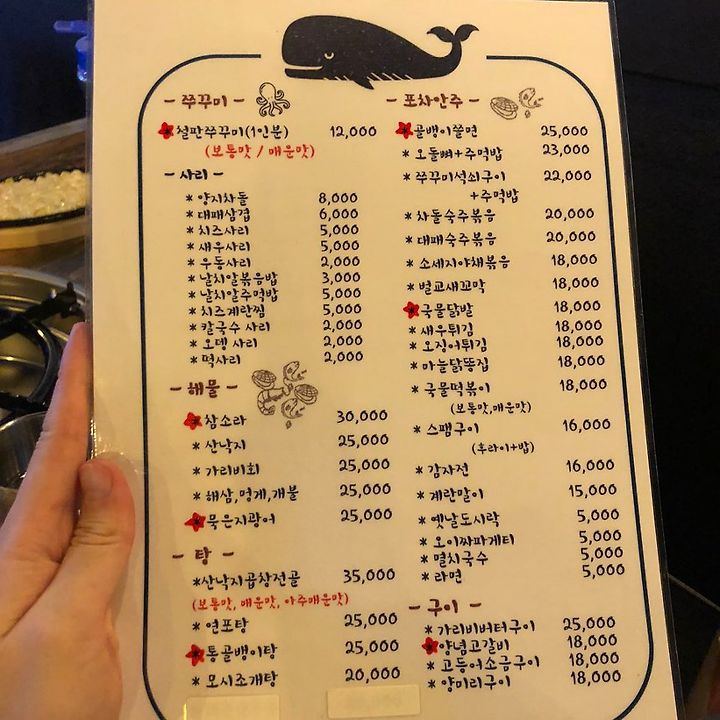 - 쭈꾸미 -
* 철판쭈꾸미(1인분) 12,000
(보통맛 / 매운맛)
- 사리 -
* 양지차돌 8,000
* 대패삼겹 6,000
* 치즈사리 5,000
* 새우사리 5,000
* 우동사리 2,000
* 날치알볶음밥 3,000
* 날치알주먹밥 5,000
* 치즈계란찜 5,000
* 칼국수 사리 2,000
* 오뎅 사리 2,000
* 떡사리 2,000
- 해물 -
* 참소라 30,000
* 산낙지 25,000
* 가리비회 25,000
* 해삼,멍게,개불 25,000
* 묵은지광어 25,000
- 탕 -
*산낙지곱창전골 35,000
(보통맛, 매운맛, 아주매운맛)
* 연포탕 25,000
* 통골뱅이탕 25,000
* 모시조개탕 20,000
- 포차안주 -
* 골뱅이쫄면 25,000
* 오돌뼈+주먹밥 23,000
* 쭈꾸미석쇠구이 22,000
+주먹밥
* 차돌숙주볶음 20,000
* 대패숙주볶음 20,000
* 소세지야채볶음 18,000
* 벌교새꼬막 18,000
* 국물닭발 18,000
* 새우튀김 18,000
* 오징어튀김 18,000
* 마늘닭똥집 18,000
* 국물떡볶이 18,000
(보통맛,매운맛)
* 스팸구이 16,000
(후라이+밥)
* 감자전 16,000
* 계란말이 15,000
* 옛날도시락 5,000
* 오이짜파게티 5,000
* 멸치국수 5,000
* 라면 5,000
- 구이 -
* 가리비버터구이 25,000
* 양념고갈비 18,000
* 고등어소금구이 18,000
* 양미리구이 18,000